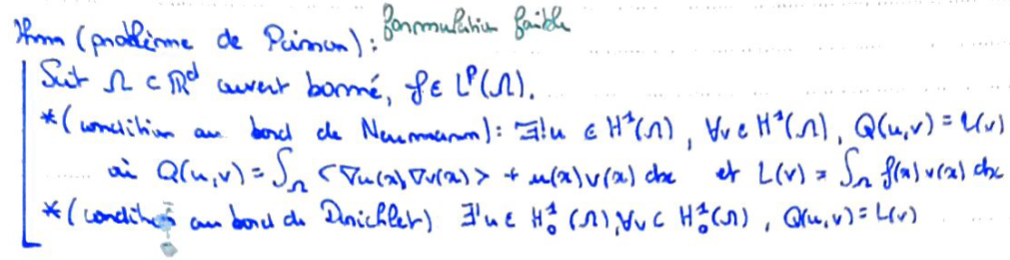 Thm (problème de Poisson) : formulation faible
Soit Ω ⊂ ℝ^d ouvert borné, f ∈ L^p(Ω).
*(condition au bord de Neumann) : ∃!u ∈ H^1(Ω), ∀v ∈ H^1(Ω), Q(u,v) = L(v)
où Q(u,v) = ∫_Ω <∇u(x), ∇v(x)> + u(x)v(x) dx et L(v) = ∫_Ω f(x)v(x) dx
*(condition au bord de Dirichlet) ∃!u ∈ H^1_0(Ω), ∀v ∈ H^1_0(Ω), Q(u,v) = L(v)